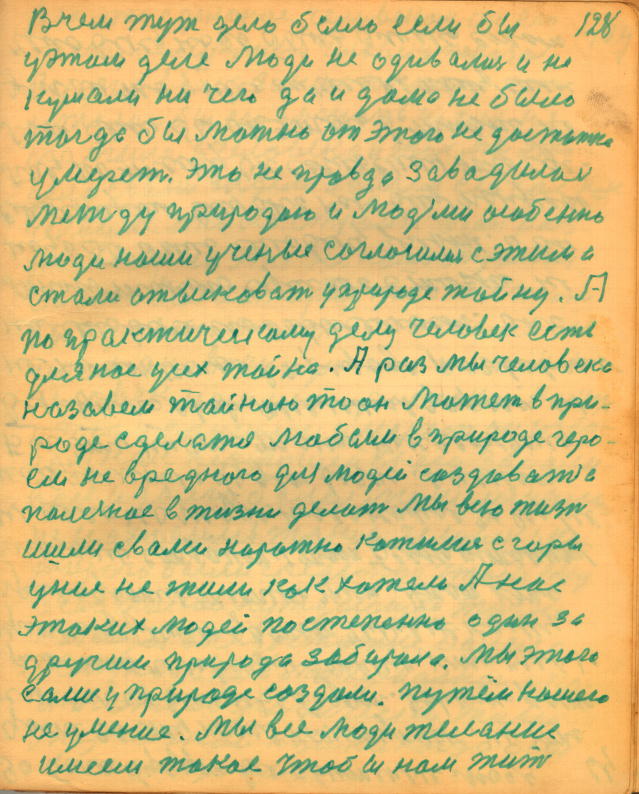 В чем тут дело было если бы 128
у этом деле люди не одивались и не
кушали ни чего да и дома не было
тогда бы можно от этого не достатка
умерет. Это не правда завадилас
между природаю и людьми особенно
люди наши ученые соглосилис с этим а
стали отвиковат у природе тайну. А
по практическому делу человек есть
для нас усех тайна. А раз мы человека
назавем тайною то он может в при-
роде сделатся любым в природе геро-
ем не вредного для людей создоват а
полезное в жизни делат мы всю жизн
ишли свами наротно катимся с гары
у низ не жили как хотели А нас
этаких людей постепенно один за
другим природа забирала. Мы этого
сами у природе создали. путём нашего
не умение. Мы все люди желание
имеем такое чтобы нам жит